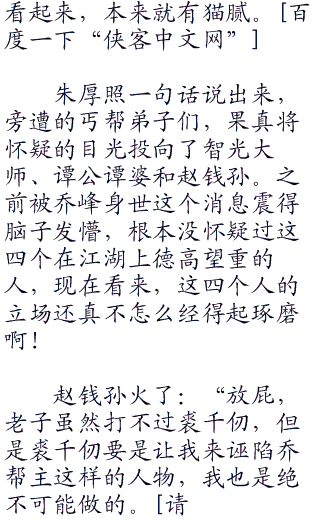 看起来，本来就有猫腻。[百
度一下“侠客中文网”]
朱厚照一句话说出来，
旁遭的丐帮弟子们，果真将
怀疑的目光投向了智光大
师、谭公谭婆和赵钱孙。之
前被乔峰身世这个消息震得
脑子发懵，根本没怀疑过这
四个在江湖上德高望重的
人，现在看来，这四个人的
立场还真不怎么经得起琢磨
啊！
赵钱孙火了：“放屁，
老子虽然打不过裘千仞，但
是裘千仞要是让我来诬陷乔
帮主这样的人物，我也是绝
不可能做的。[请